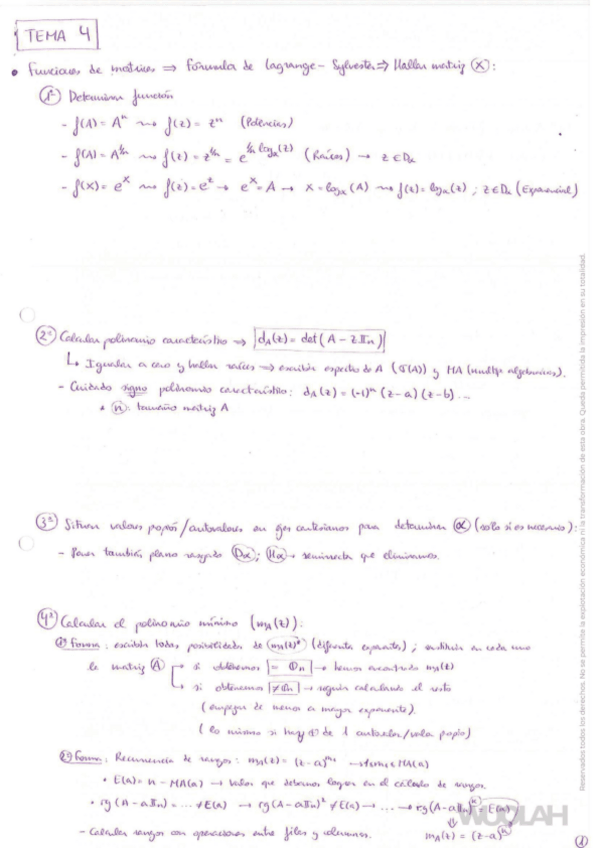 TEMA 4
• Funciones de matrices ⇒ Fórmula de Lagrange-Sylvester ⇒ Hallar matriz (X):
1º Determinar función
- f(A) = Aⁿ ⇝ f(z) = zⁿ (Potencias)
- f(A) = A^(1/n) ⇝ f(z) = z^(1/n) = e^(1/n log_α(z)) (Raíces) → z ∈ Dα
- f(X) = e^X ⇝ f(z) = e^z → e^X = A → X = log_α(A) ⇝ f(z) = log_α(z) ; z ∈ Dα (Exponencial)
2º Calcular polinomio característico ⇒ d_A(z) = det(A - zIₙ)
↳ Igualar a cero y hallar raíces ⇒ escribir espectro de A (σ(A)) y MA (multip. algebraicas).
- Cuidado signo polinomio característico: d_A(z) = (-1)ⁿ (z-a)(z-b)...
* n: tamaño matriz A
3º Situar valores propios/autovalores en ejes cartesianos para determinar α (solo si es necesario):
- Poner también plano rasgado Dα; Hα → semirrecta que eliminamos.
4º Calcular el polinomio mínimo (m_A(z)):
1ª Forma: escribir todas posibilidades de m_A(z) (diferente exponente); sustituir en cada uno
la matriz A → si obtenemos = 0ₙ → hemos encontrado m_A(z)
→ si obtenemos ≠ 0ₙ → seguir calculando el resto
(empezar de menor a mayor exponente).
(lo mismo si hay + de 1 autovalor/valor propio)
2ª Forma: Recurrencia de rangos: m_A(z) = (z-a) MA(a)
• E(a) = n - MA(a) → valor que debemos lograr en el cálculo de rangos.
• rg(A-aIₙ) = ... ≠ E(a) → rg(A-aIₙ)² ≠ E(a) → ... → rg(A-aIₙ)^k = E(a)
- Calcular rangos con operaciones entre filas y columnas.
m_A(z) = (z-a)^k
WUOLAH
1
Reservados todos los derechos. No se permite la explotación económica ni la transformación de esta obra. Queda permitida la impresión en su totalidad.